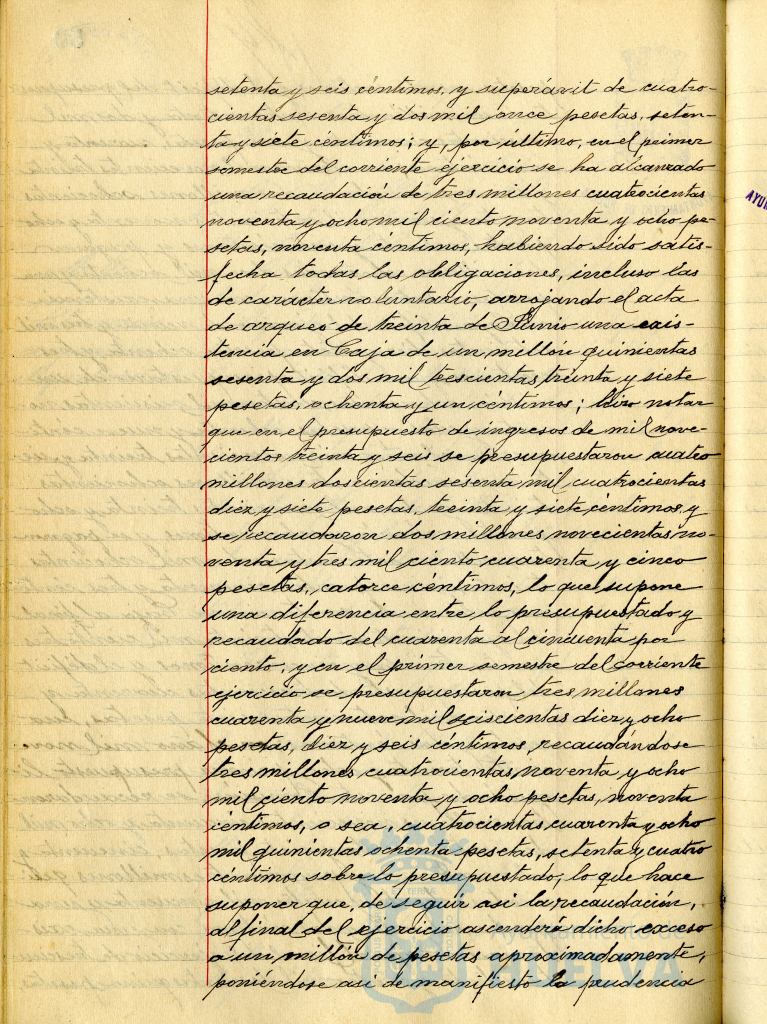 setenta y seis céntimos, y superávit de cuatro-
cientas sesenta y dos mil once pesetas, seten-
ta y siete céntimos; y, por último, en el primer
semestre del corriente ejercicio se ha alcanzado
una recaudación de tres millones cuatrocientas
noventa y ocho mil ciento noventa y ocho pe-
setas, noventa céntimos, habiendo sido satis-
fecha todas las obligaciones, incluso las
de carácter voluntario, arrojando el acta
de arqueo de treinta de Junio una exis-
tencia en Caja de un millón quinientas
sesenta y dos mil trescientas treinta y siete
pesetas, ochenta y un céntimos; hizo notar
que en el presupuesto de ingresos de mil nove-
cientos treinta y seis se presupuestaron cuatro
millones doscientas sesenta mil cuatrocientas
diez y siete pesetas, treinta y siete céntimos, y
se recaudaron dos millones novecientas no-
venta y tres mil ciento cuarenta y cinco
pesetas, catorce céntimos, lo que supone
una diferencia entre lo presupuestado y
recaudado del cuarenta al cincuenta por
ciento, y en el primer semestre del corriente
ejercicio se presupuestaron tres millones
cuarenta y nueve mil seiscientas diez y ocho
pesetas, diez y seis céntimos, recaudándose
tres millones cuatrocientas noventa y ocho
mil ciento noventa y ocho pesetas, noventa
céntimos, o sea, cuatrocientas cuarenta y ocho
mil quinientas ochenta pesetas, setenta y cuatro
céntimos sobre lo presupuestado; lo que hace
suponer que, de seguir asi la recaudación,
al final del ejercicio ascenderá dicho exceso
a un millón de pesetas aproximadamente,
poniéndose asi de manifiesto la prudencia